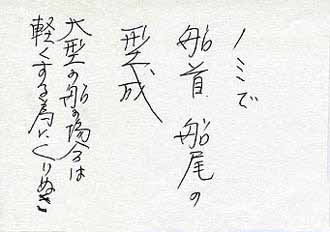 ノミで
船首船尾の
型成
大型の船の場合は
軽くする為にくりぬき